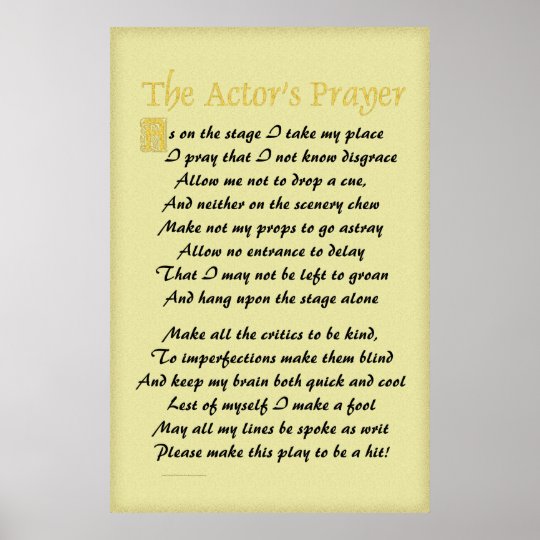 The Actor's Prayer
As on the stage I take my place
I pray that I not know disgrace
Allow me not to drop a cue,
And neither on the scenery chew
Make not my props to go astray
Allow no entrance to delay
That I may not be left to groan
And hang upon the stage alone
Make all the critics to be kind,
To imperfections make them blind
And keep my brain both quick and cool
Lest of myself I make a fool
May all my lines be spoke as writ
Please make this play to be a hit!